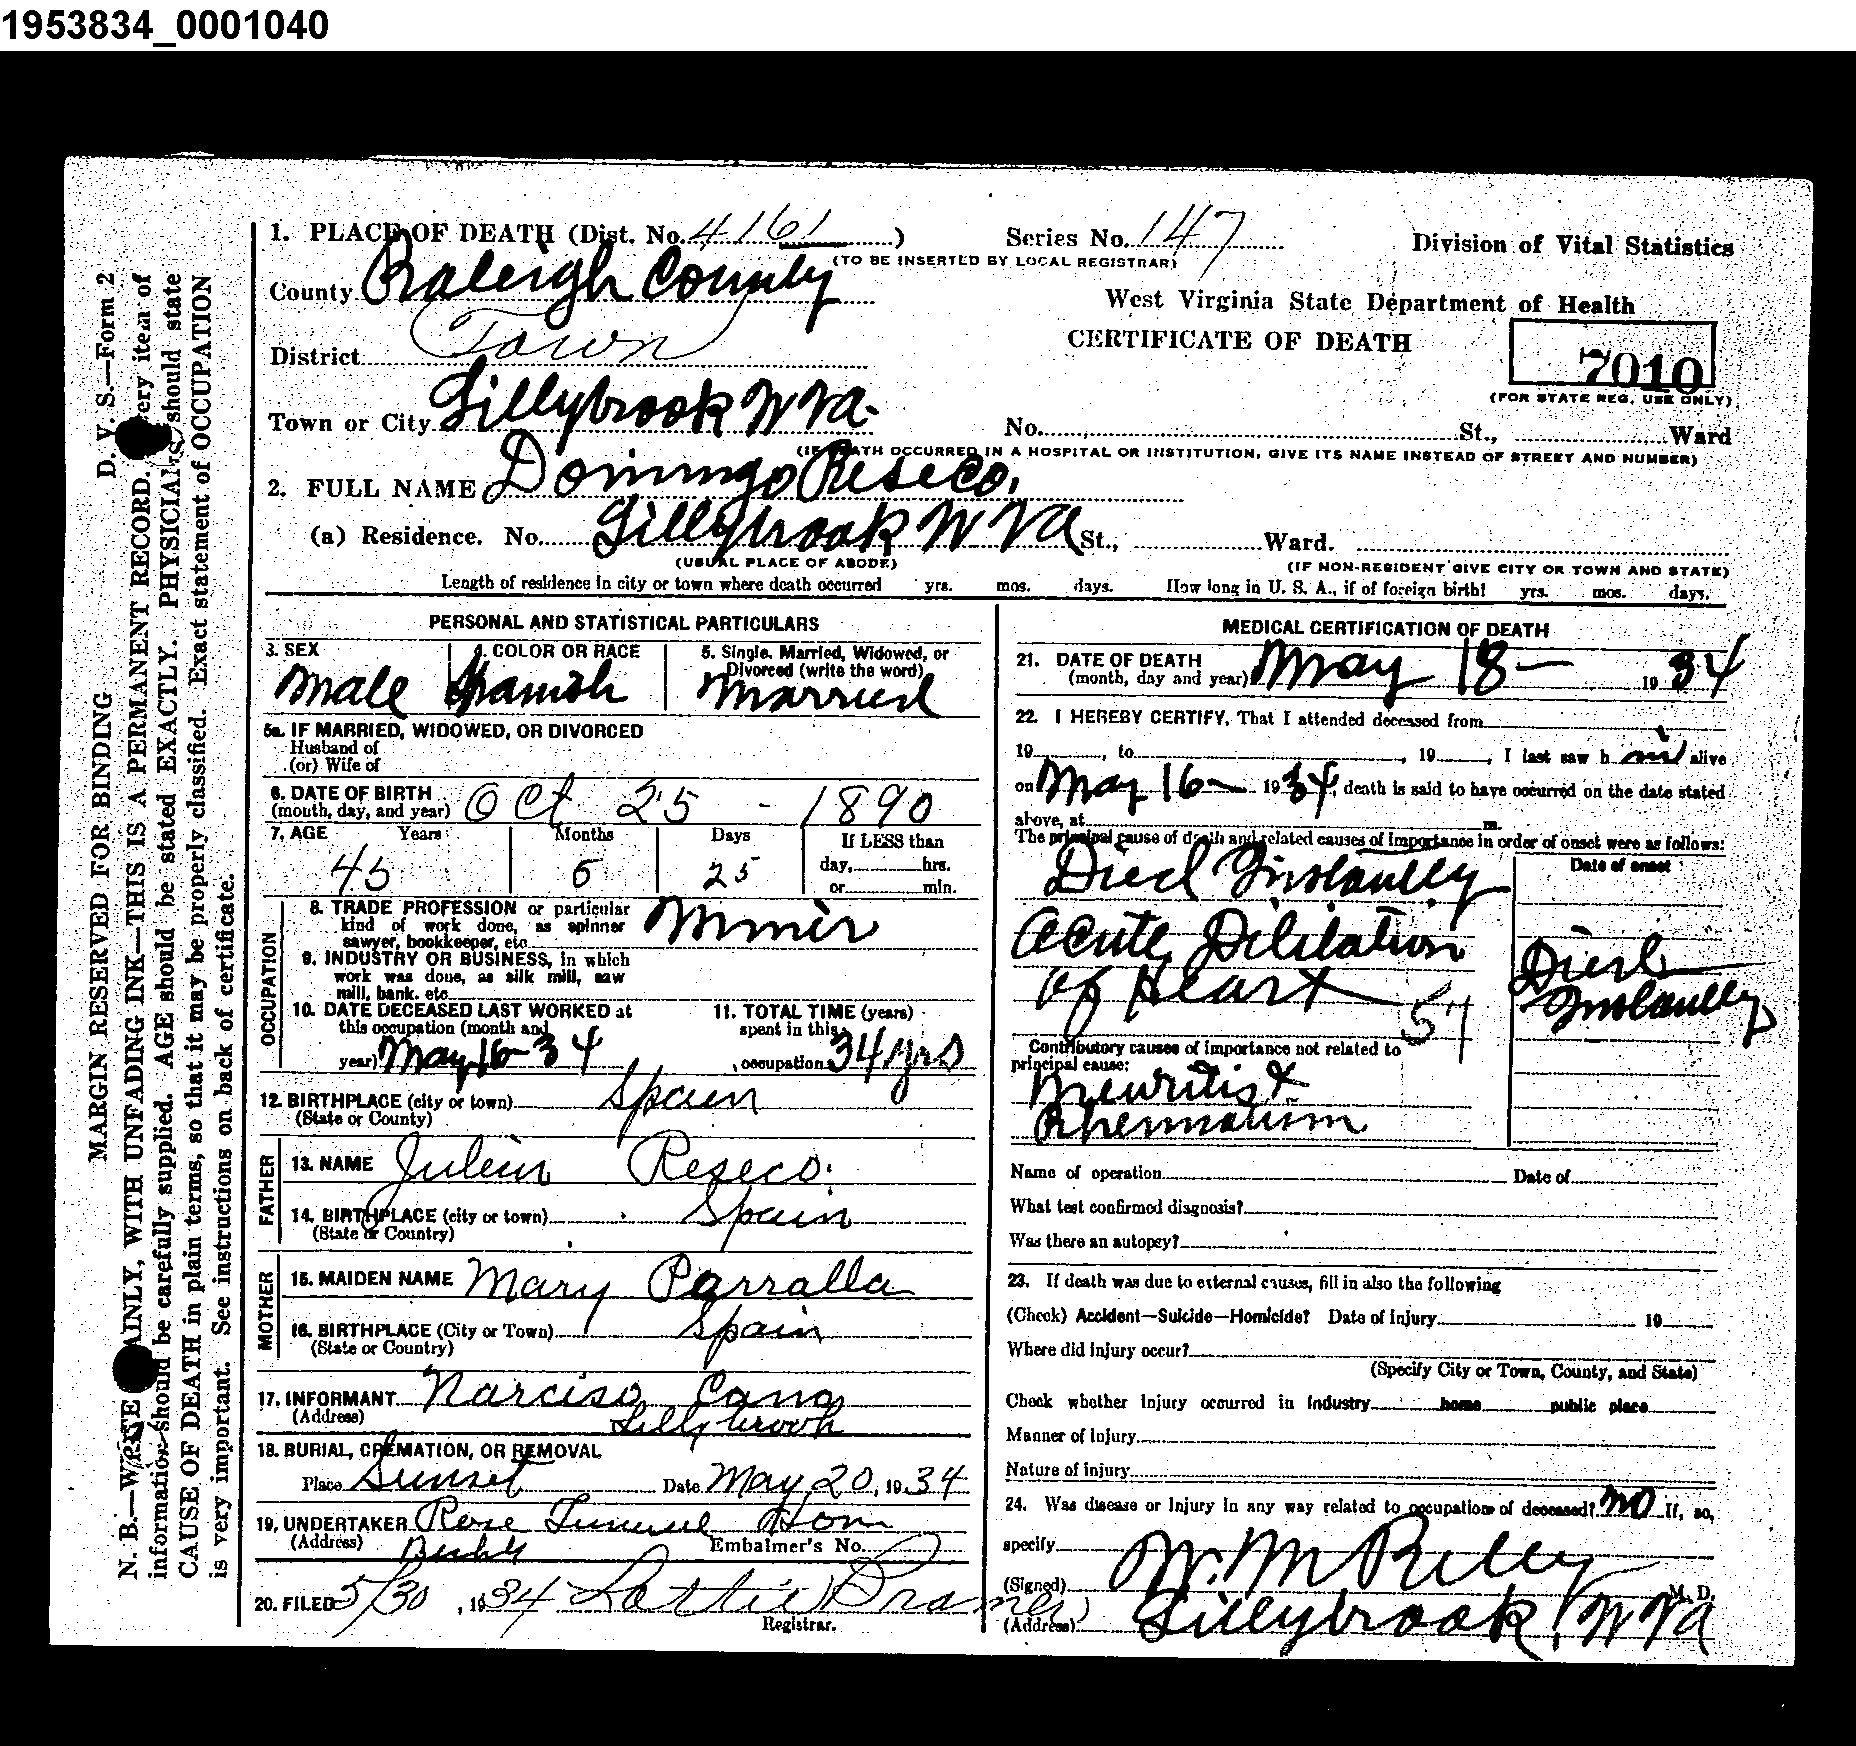 1953834_0001040
1. PLACE OF DEATH (Dist. No. 4161)
Series No. 147
(TO BE INSERTED BY LOCAL REGISTRAR)
Division of Vital Statistics
County Raleigh County
West Virginia State Department of Health
CERTIFICATE OF DEATH
District Town
7010
(FOR STATE REG. USE ONLY)
Town or City Lillybrook W Va.
No. St., Ward
(IF DEATH OCCURRED IN A HOSPITAL OR INSTITUTION, GIVE ITS NAME INSTEAD OF STREET AND NUMBER)
2. FULL NAME Domingo Reseco.
(a) Residence. No. Lillybrook W Va St., Ward.
(USUAL PLACE OF ABODE)
(IF NON-RESIDENT GIVE CITY OR TOWN AND STATE)
Length of residence in city or town where death occurred yrs. mos. days. How long in U. S. A., if of foreign birth! yrs. mos. days.
PERSONAL AND STATISTICAL PARTICULARS
3. SEX
Male
4. COLOR OR RACE
Spanish
5. Single, Married, Widowed, or
Divorced (write the word)
Married
5a. IF MARRIED, WIDOWED, OR DIVORCED
Husband of
(or) Wife of
6. DATE OF BIRTH
(month, day, and year) Oct 25 - 1890
7. AGE Years Months Days If LESS than
45 6 25 day, hrs.
or min.
OCCUPATION
8. TRADE PROFESSION or particular
kind of work done, as spinner
sawyer, bookkeeper, etc. Miner
9. INDUSTRY OR BUSINESS, in which
work was done, as silk mill, saw
mill, bank, etc
10. DATE DECEASED LAST WORKED at
this occupation (month and
year) May 16-34
11. TOTAL TIME (years)
spent in this
occupation 34 yrs
12. BIRTHPLACE (city or town) Spain
(State or County)
FATHER
13. NAME Julein Reseco.
14. BIRTHPLACE (city or town) Spain
(State or Country)
MOTHER
15. MAIDEN NAME Mary Parralla
16. BIRTHPLACE (City or Town) Spain
(State or Country)
17. INFORMANT Narciso Cano
(Address) Lillybrook
18. BURIAL, CREMATION, OR REMOVAL
Place Sunset Date May 20, 1934
19. UNDERTAKER Rose Funeral Hom
(Address) Embalmer's No.
20. FILED 5/30, 1934 Lottie
Registrar.
MEDICAL CERTIFICATION OF DEATH
21. DATE OF DEATH
(month, day and year) May 18- 1934
22. I HEREBY CERTIFY, That I attended deceased from
19, to, 19, I last saw h im alive
on May 16- 1934, death is said to have occurred on the date stated
above, at m.
The principal cause of death and related causes of importance in order of onset were as follows:
Date of onset
Died Instantly
Acute Dililation
of Heart
Died
Instantly
Contributory causes of importance not related to
principal cause:
Neuritis &
Rheumatism
Name of operation Date of
What test confirmed diagnosis?
Was there an autopsy?
23. If death was due to external causes, fill in also the following
(Check) Accident—Suicide—Homicide? Date of injury 19
Where did injury occur?
(Specify City or Town, County, and State)
Check whether injury occurred in industry home public place
Manner of injury
Nature of injury
24. Was disease or injury in any way related to occupation of deceased? No If, so,
specify
(Signed) W. M Riley M. D.
(Address) Lillybrook, W Va
D. V. S.—Form 2
MARGIN RESERVED FOR BINDING
N. B.—WRITE PLAINLY, WITH UNFADING INK—THIS IS A PERMANENT RECORD. Every item of
information should be carefully supplied. AGE should be stated EXACTLY. PHYSICIANS should state
CAUSE OF DEATH in plain terms, so that it may be properly classified. Exact statement of OCCUPATION
is very important. See instructions on back of certificate.